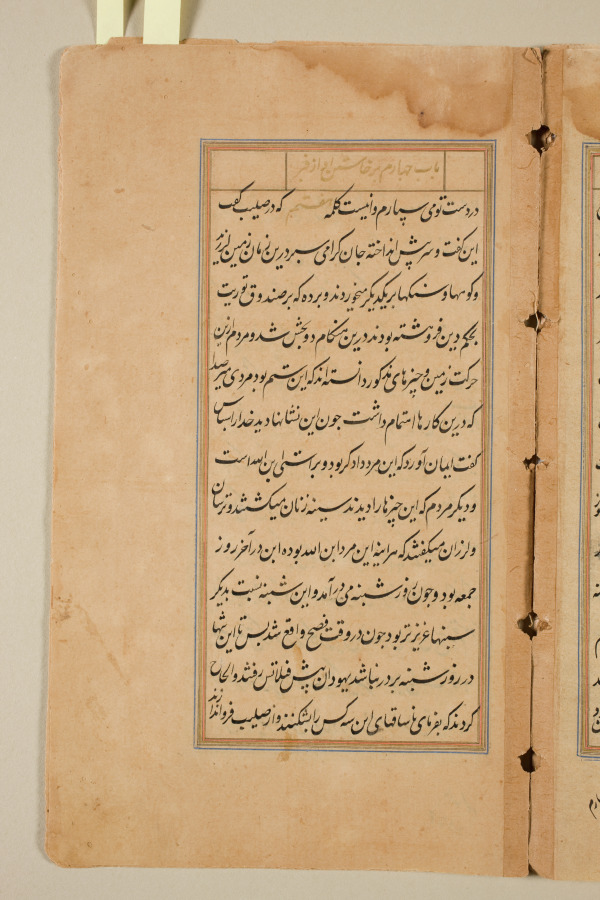 باب چهارم برخاستن او از قبر
در دست تو می سپارم و اینست کلمه هفتم که در صلیب گفت
این گفت و سرش انداخته جان گرامی سپرد درین زمان زمین لرزید
و کوهها و سنگها بریکدیگر میخوردند و پرده که بر صندوق توریت
بحکم دین فروهشته بودند درین هنگام دو بخش شد و مردم ازین
حرکت زمین و چیزهای مذکور دانسته اند که این ستم بود مردی میر صد
که درین کارها اهتمام داشت چون این نشانها دید خدا را سپاس
گفت ایمان آورد که این مرد دادگر بود و براستی ابن الله است
و دیگر مردم که این چیزها را دیدند سینه زنان میگشتند و ترسان
و لرزان میگفتند که هر اینه این مرد ابن الله بوده این در آخر روز
جمعه بود و چون روز شنبه می در آمد و این شنبه نسبت بدیگر
شنبها عزیزتر بود چون در وقت فصح واقع شد پس تا این تنها
در روز شنبه بر در نباشد یهودان پیش فیلاتس رفتند و الحاح
کردند که بفرمای تا ساقهای این سه کس را بشکنند و از صلیب فرو اندازند